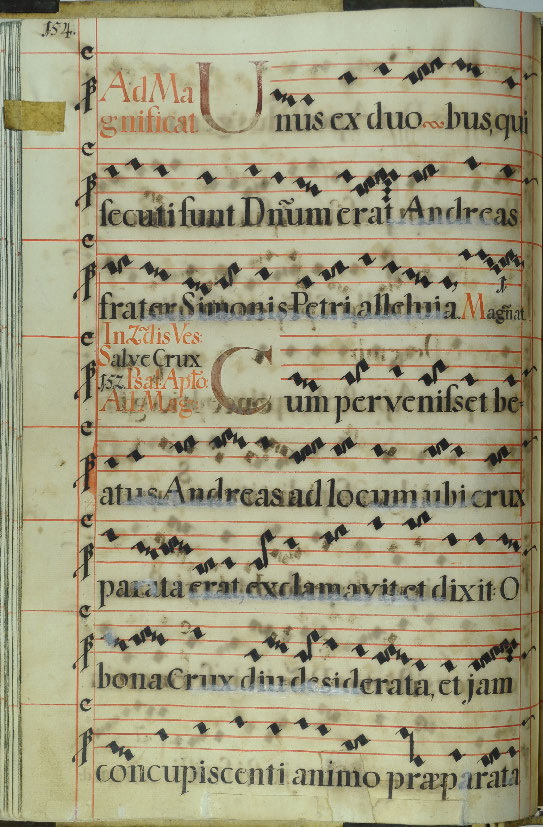 154.
Ad Ma
gnificat
Unus ex duobus, qui
secuti sunt Dñum erat Andreas
frater Simonis Petri alleluia. Magñat
1.
In 2.dis Ves.
Salve Crux
152. Psal. Apto.
Ad Mag.
Cum pervenisset be-
atus Andreas ad locum ubi crux
parata erat, exclamavit et dixit: O
bona Crux diu desiderata, et jam
concupiscenti animo præparata